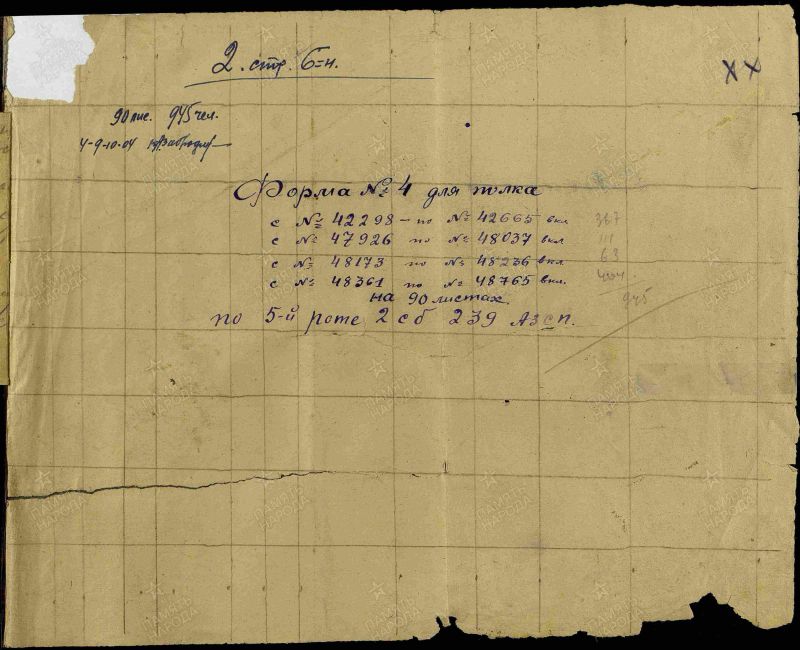 2. стр. 6-н.
XX
90 лис. 945 чел.
4-9-10-04
Форма № 4 для полка
с № 42298 – по № 42665 вкл 367
с № 47926 по № 48037 вкл 111
с № 48173 по № 48236 вкл 63
с № 48361 по № 48765 вкл. 404.
на 90 листах. 945
по 5-й роте 2 сб 239 АЗСП.
ПАМЯТЬ НАРОДА